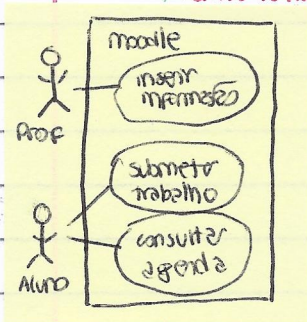 moodle
inserir
informação
Prof
submeter
trabalho
consultar
agenda
Aluno